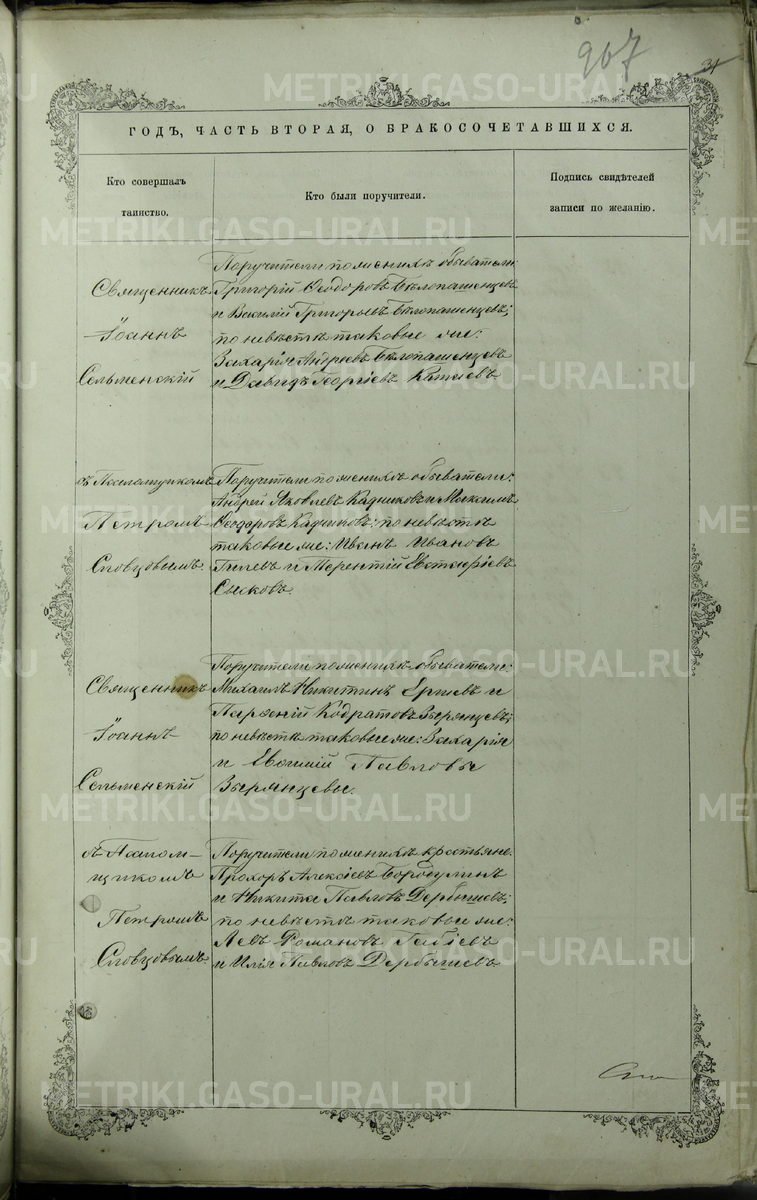 967
31
ГОДЪ, ЧАСТЬ ВТОРАЯ, О БРАКОСОЧЕТАВШИХСЯ.
Кто совершалъ
таинство.
Кто были поручители.
Подпись свидѣтелей
записи по желанію.
Священникъ
Іоаннъ
Сельменскій
Поручители по женихѣ обыватели:
Григорій Ѳеодоровъ Бѣлопашенцевъ
и Василій Григорьевъ Бѣлопашенцевъ;
по невѣстѣ таковые же:
Захарія Андреевъ Бѣлопашенцевъ
и Давидъ Георгіевъ
съ Псаломщикомъ
Петромъ
Словцовымъ.
Поручители по женихѣ обыватели:
Андрей Яковлевъ Кадниковъ и Максимъ
Ѳеодоровъ Кадниковъ; по невѣстѣ
таковые же: Иванъ Ивановъ
Гилевъ и Терентій
Сысковъ.
Священникъ
Іоаннъ
Сельменскій
Поручители по женихѣ обыватели:
Михаилъ Никитинъ и
Парѳеній Кодратовъ Зырянцевъ;
по невѣстѣ таковые же: Захарія
и Евѳимій Павловы
Зырянцевы.
съ Псалом-
щикомъ
Петромъ
Словцовымъ
Поручители по женихѣ крестьяне:
Прохоръ Алексѣевъ Бородулинъ
и Никита Павловъ Дербышевъ;
по невѣстѣ таковые же:
Левъ Романовъ
и Илія Павловъ Дербышевъ
METRIKI.GASO-URAL.RU